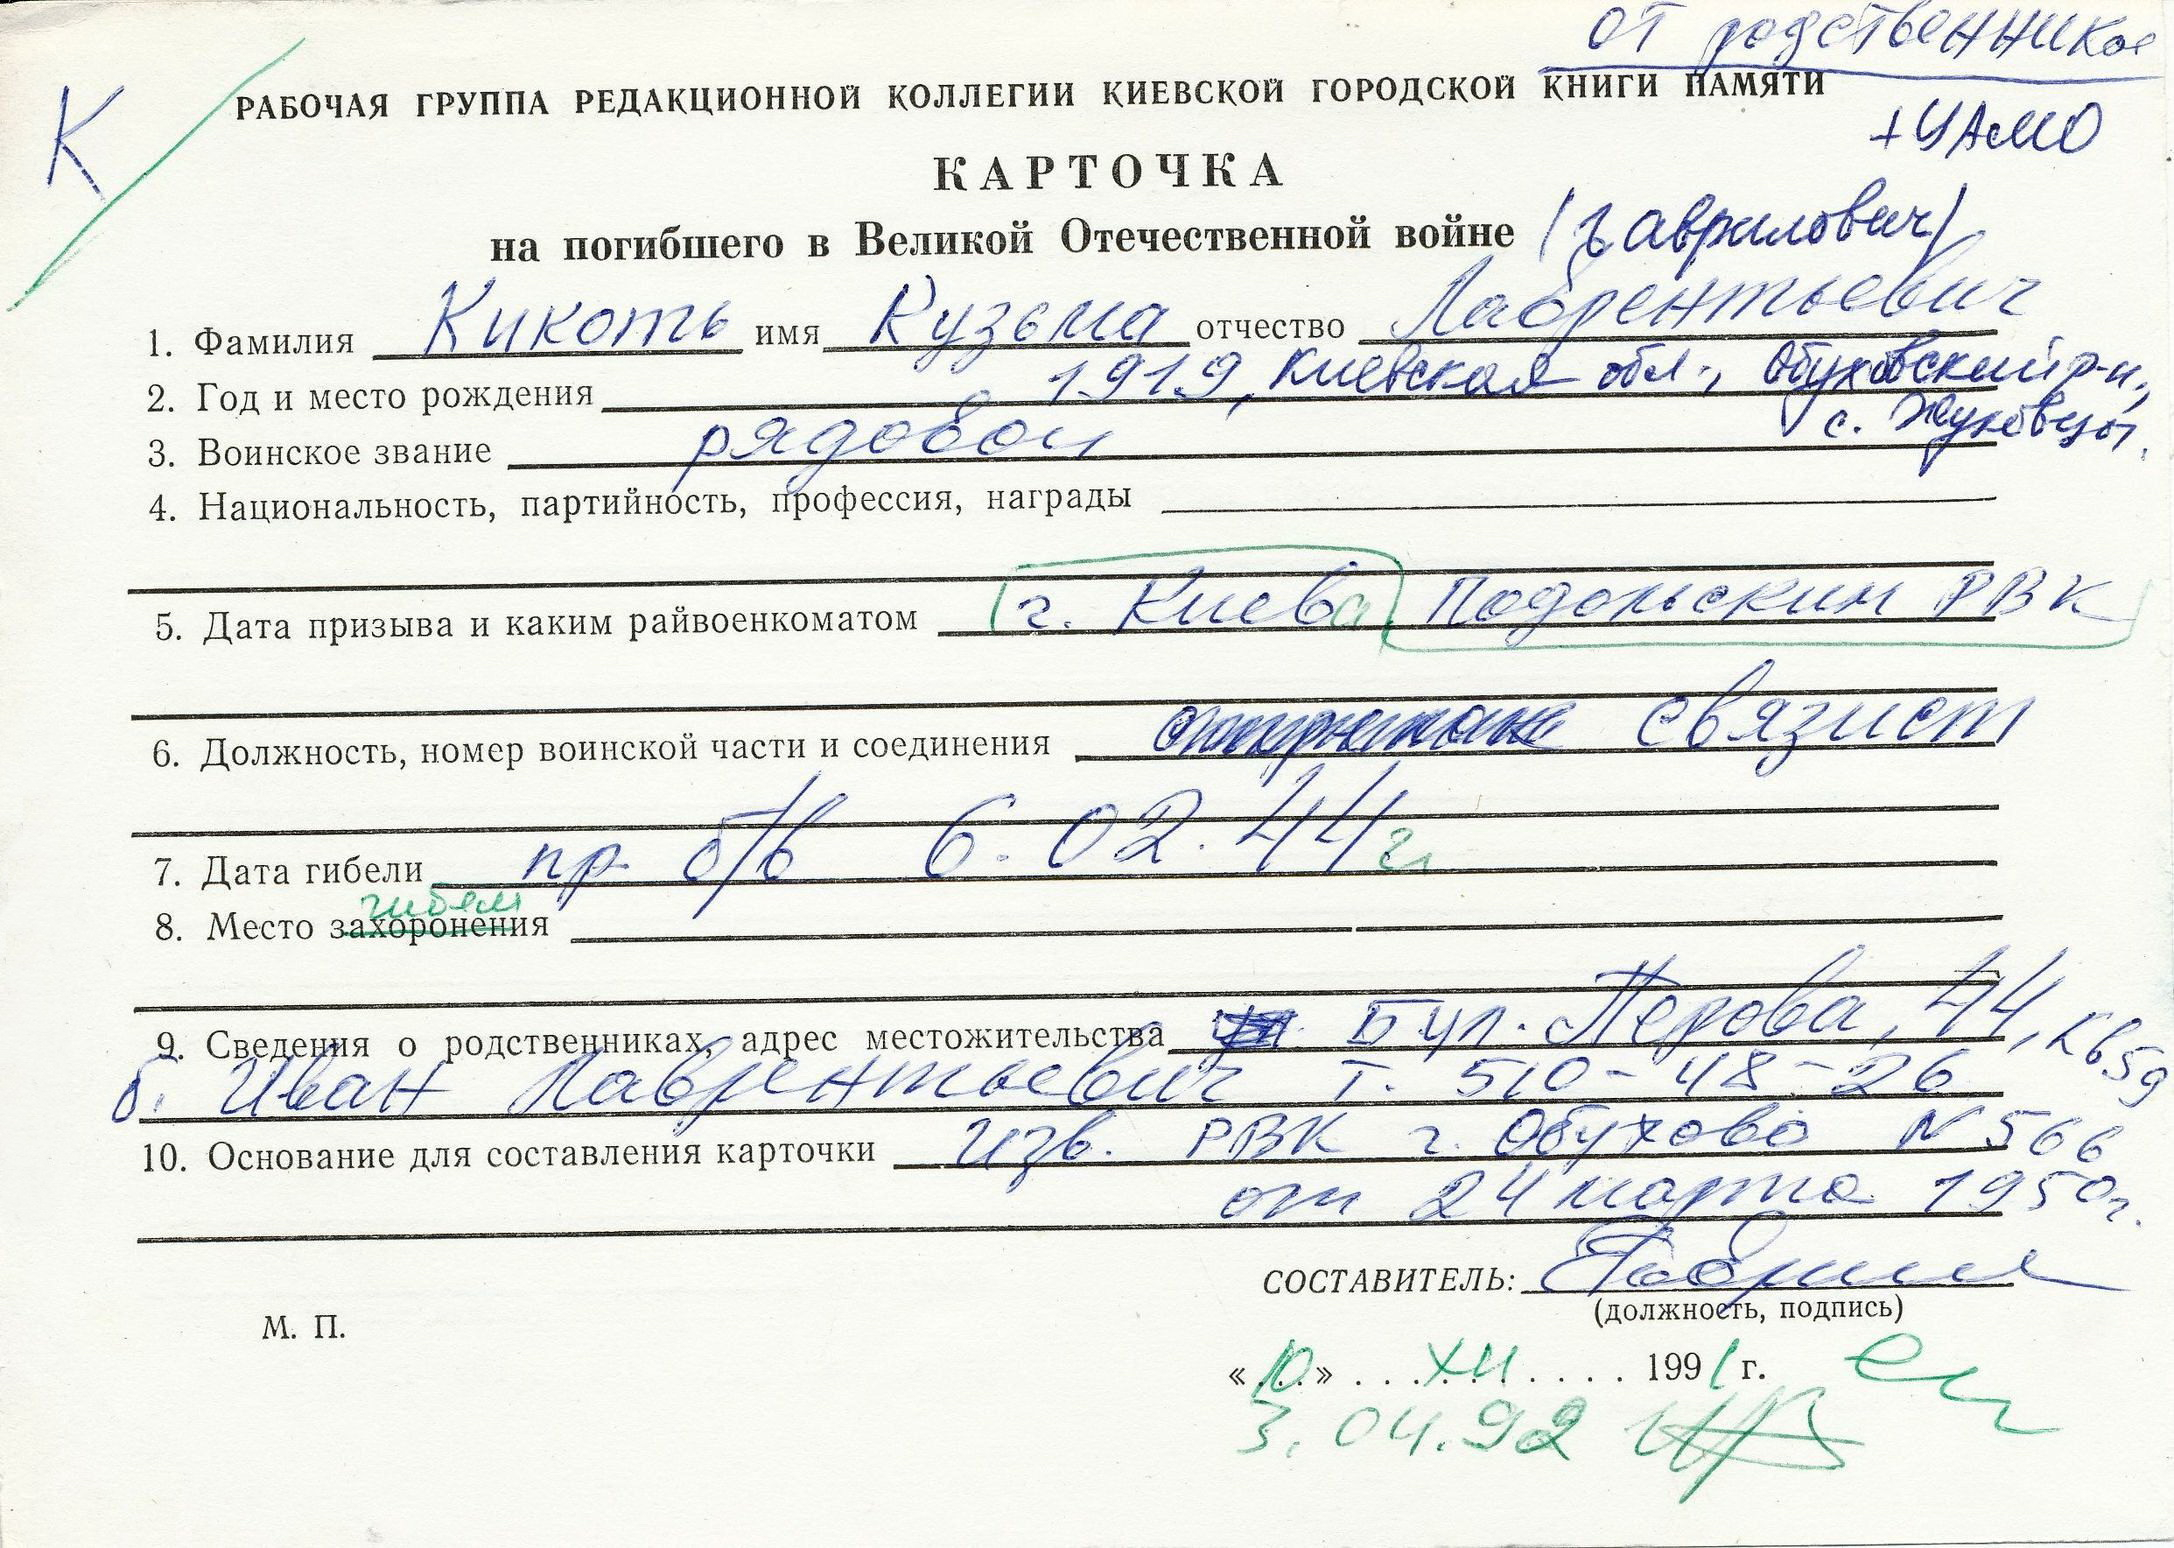 от родственников
К
РАБОЧАЯ ГРУППА РЕДАКЦИОННОЙ КОЛЛЕГИИ КИЕВСКОЙ ГОРОДСКОЙ КНИГИ ПАМЯТИ
+ЦАМО
КАРТОЧКА
на погибшего в Великой Отечественной войне (Гаврилович)
1. Фамилия Кикоть имя Кузьма отчество Лаврентьевич
2. Год и место рождения 1919, Киевская обл., Обуховский р-н,
с. Жуковцы.
3. Воинское звание рядовой
4. Национальность, партийность, профессия, награды
5. Дата призыва и каким райвоенкоматом г. Киева Подольским РВК
6. Должность, номер воинской части и соединения связист
7. Дата гибели пр. б/в 6.02.44 г.
гибели
8. Место захоронения
9. Сведения о родственниках, адрес местожительства Бул. Перова, 44, кв 59
б. Иван Лаврентьевич т. 510-48-26
10. Основание для составления карточки изв. РВК г. Обухово N 566
от 24 марта 1950г.
СОСТАВИТЕЛЬ:
(должность, подпись)
М. П.
«10» XII 1991 г.
3.04.92